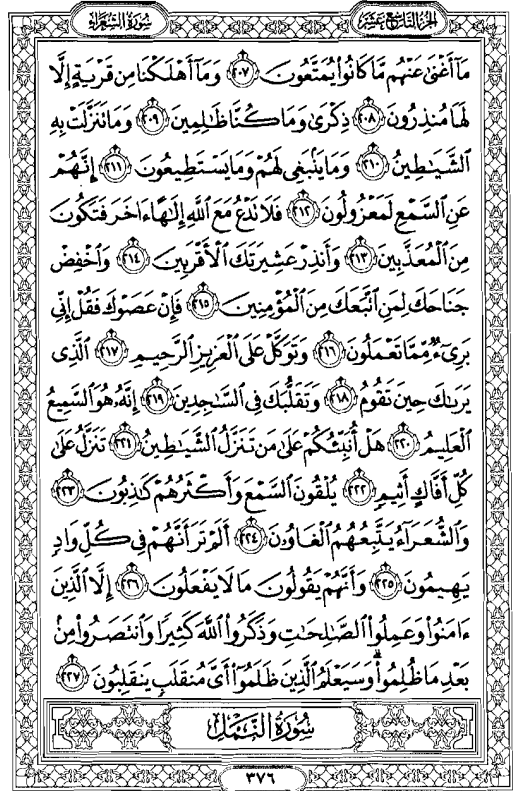 الجزء التاسع عشر
سُورَةُ الشُّعَرَاءِ
مَآ أَغْنَىٰ عَنْهُم مَّا كَانُوا۟ يُمَتَّعُونَ ٢٠٧ وَمَآ أَهْلَكْنَا مِن قَرْيَةٍ إِلَّا
لَهَا مُنذِرُونَ ٢٠٨ ذِكْرَىٰ وَمَا كُنَّا ظَٰلِمِينَ ٢٠٩ وَمَا تَنَزَّلَتْ بِهِ
ٱلشَّيَٰطِينُ ٢١٠ وَمَا يَنۢبَغِى لَهُمْ وَمَا يَسْتَطِيعُونَ ٢١١ إِنَّهُمْ
عَنِ ٱلسَّمْعِ لَمَعْزُولُونَ ٢١٢ فَلَا تَدْعُ مَعَ ٱللَّهِ إِلَٰهًا ءَاخَرَ فَتَكُونَ
مِنَ ٱلْمُعَذَّبِينَ ٢١٣ وَأَنذِرْ عَشِيرَتَكَ ٱلْأَقْرَبِينَ ٢١٤ وَٱخْفِضْ
جَنَاحَكَ لِمَنِ ٱتَّبَعَكَ مِنَ ٱلْمُؤْمِنِينَ ٢١٥ فَإِنْ عَصَوْكَ فَقُلْ إِنِّى
بَرِىٓءٌ مِّمَّا تَعْمَلُونَ ٢١٦ وَتَوَكَّلْ عَلَى ٱلْعَزِيزِ ٱلرَّحِيمِ ٢١٧ ٱلَّذِى
يَرَىٰكَ حِينَ تَقُومُ ٢١٨ وَتَقَلُّبَكَ فِى ٱلسَّٰجِدِينَ ٢١٩ إِنَّهُۥ هُوَ ٱلسَّمِيعُ
ٱلْعَلِيمُ ٢٢٠ هَلْ أُنَبِّئُكُمْ عَلَىٰ مَن تَنَزَّلُ ٱلشَّيَٰطِينُ ٢٢١ تَنَزَّلُ عَلَىٰ
كُلِّ أَفَّاكٍ أَثِيمٍ ٢٢٢ يُلْقُونَ ٱلسَّمْعَ وَأَكْثَرُهُمْ كَٰذِبُونَ ٢٢٣
وَٱلشُّعَرَآءُ يَتَّبِعُهُمُ ٱلْغَاوُۥنَ ٢٢٤ أَلَمْ تَرَ أَنَّهُمْ فِى كُلِّ وَادٍ
يَهِيمُونَ ٢٢٥ وَأَنَّهُمْ يَقُولُونَ مَا لَا يَفْعَلُونَ ٢٢٦ إِلَّا ٱلَّذِينَ
ءَامَنُوا۟ وَعَمِلُوا۟ ٱلصَّٰلِحَٰتِ وَذَكَرُوا۟ ٱللَّهَ كَثِيرًا وَٱنتَصَرُوا۟ مِنۢ
بَعْدِ مَا ظُلِمُوا۟ ۗ وَسَيَعْلَمُ ٱلَّذِينَ ظَلَمُوٓا۟ أَىَّ مُنقَلَبٍ يَنقَلِبُونَ ٢٢٧
سُورَةُ النَّمْلِ
٣٧٦